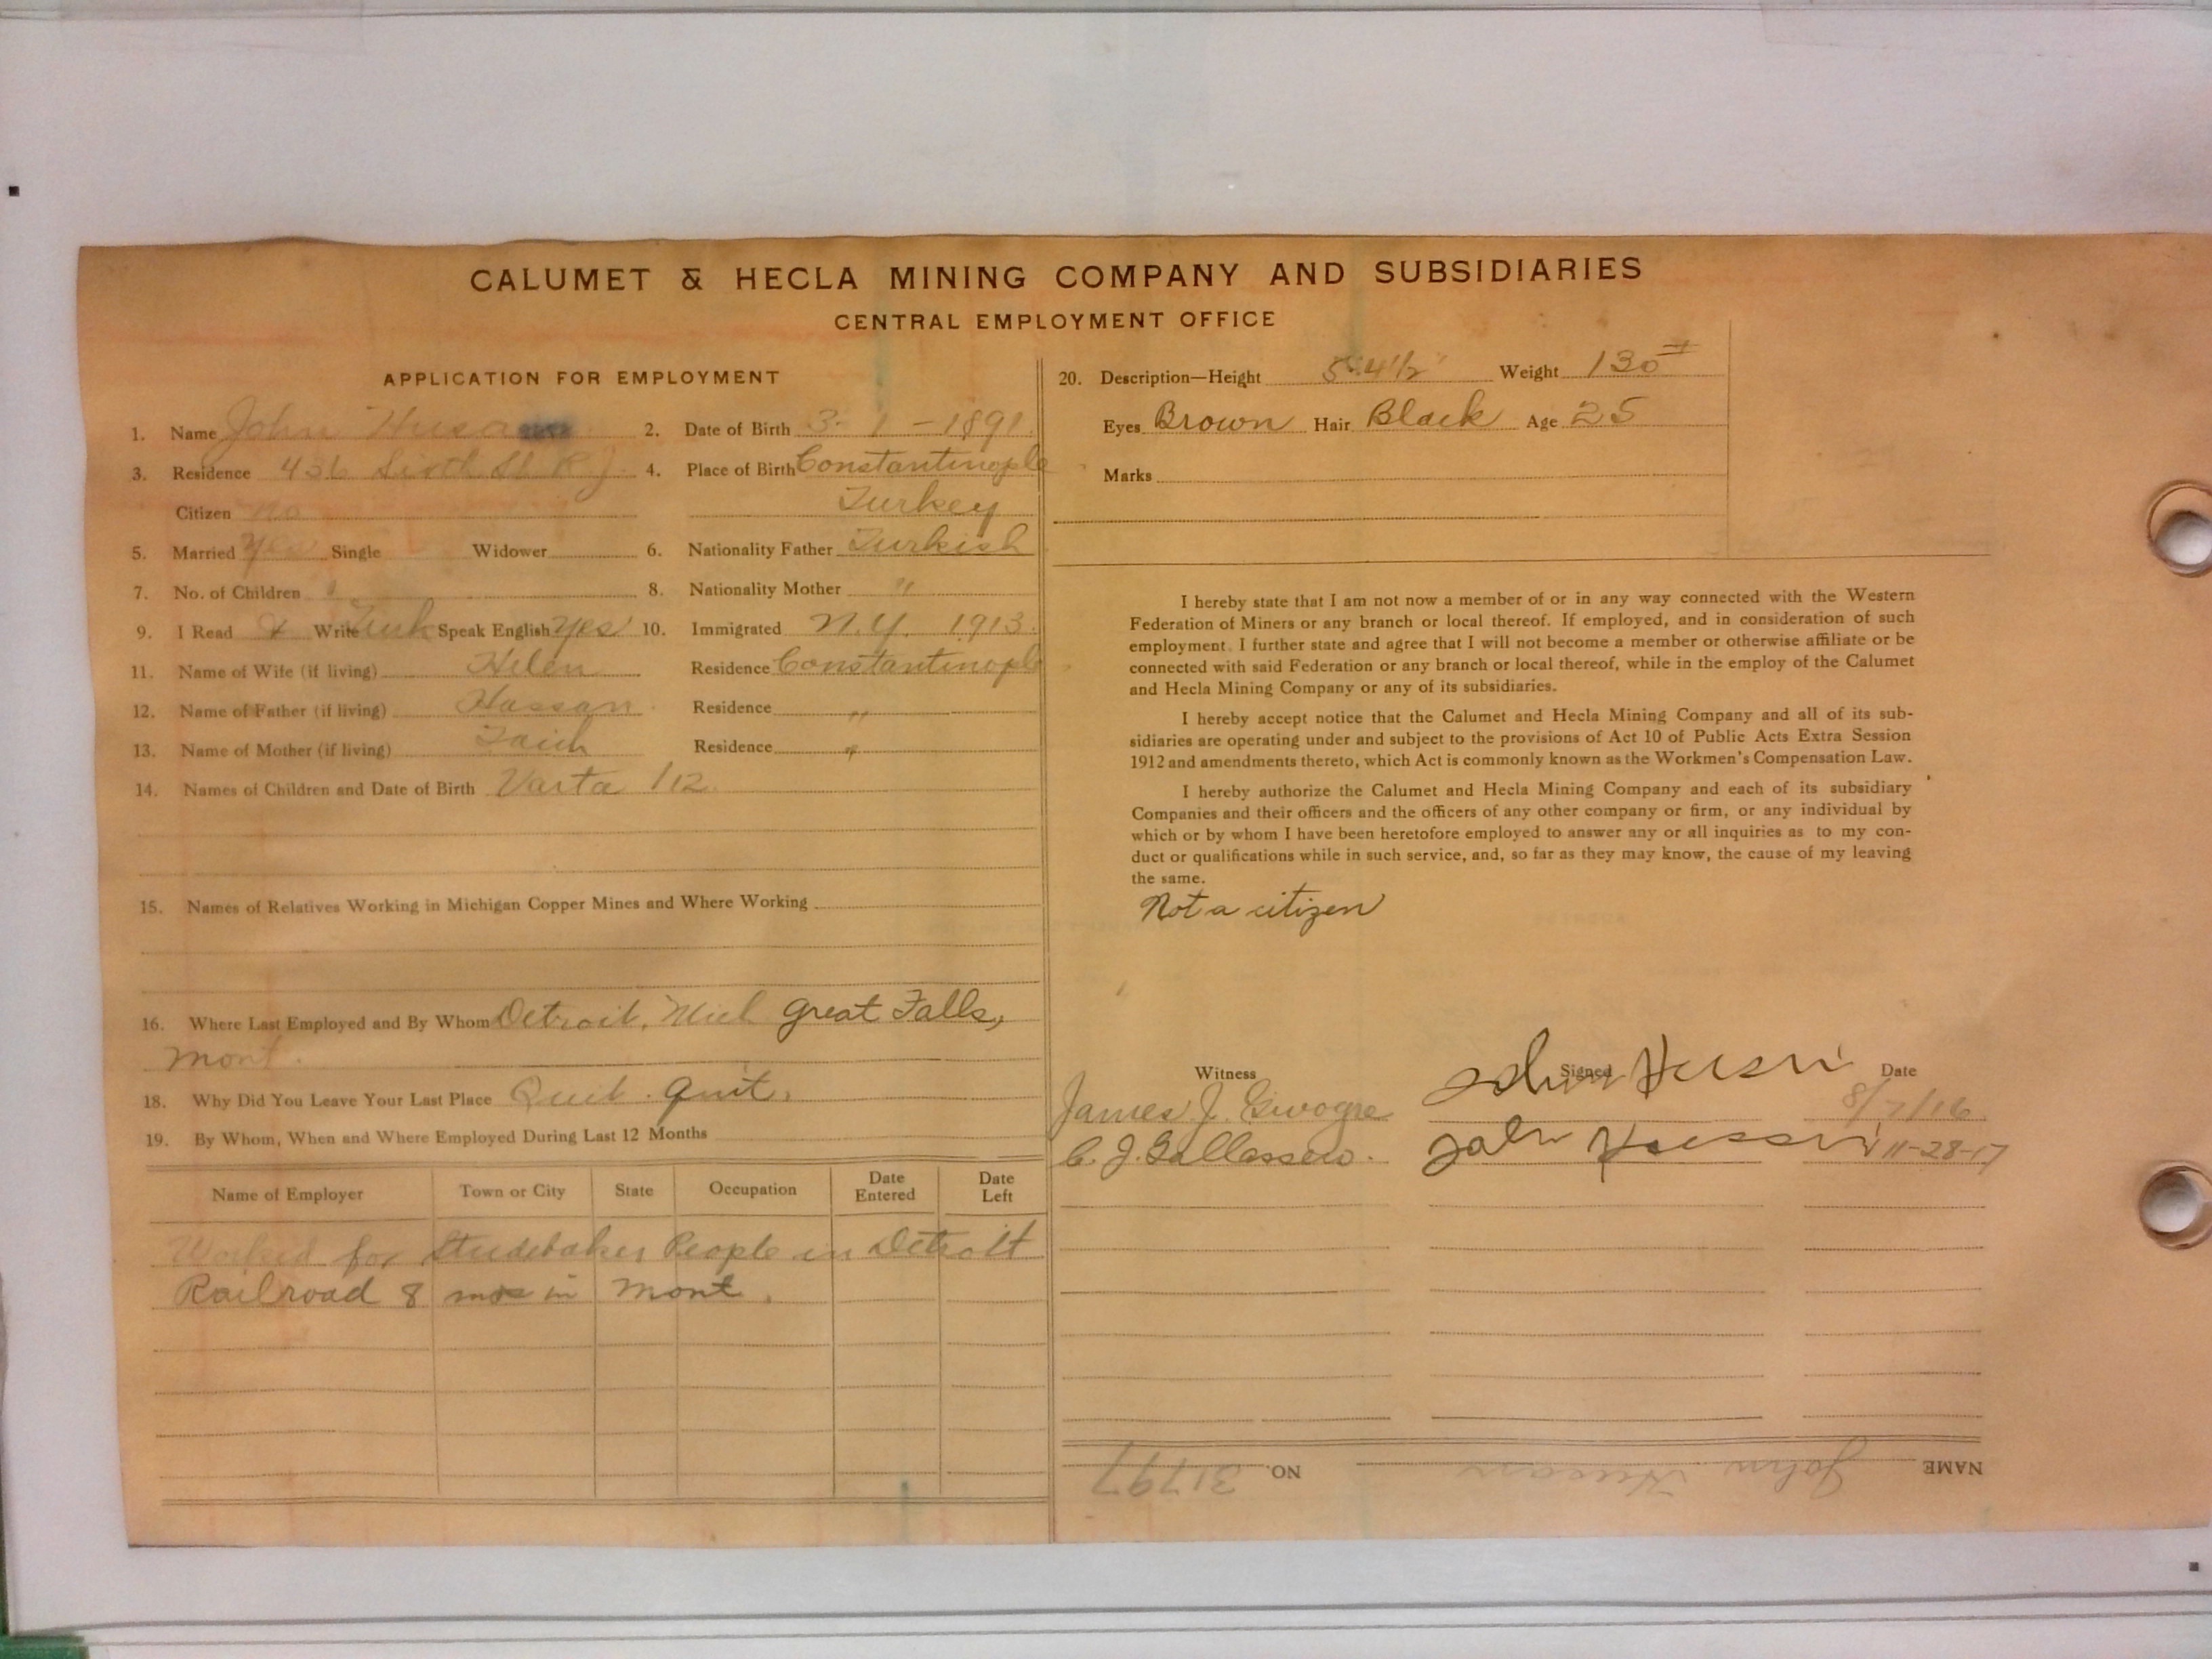 CALUMET & HECLA MINING COMPANY AND SUBSIDIARIES
CENTRAL EMPLOYMENT OFFICE
APPLICATION FOR EMPLOYMENT
1. Name John
2. Date of Birth 3-1-1891
3. Residence 436 Sixth St. R. J.
4. Place of Birth Constantinople
Citizen No
Turkey
5. Married Yes Single Widower
6. Nationality Father Turkish
7. No. of Children 1
8. Nationality Mother "
9. I Read & Write Turk Speak English Yes
10. Immigrated N.Y. 1913.
11. Name of Wife (if living) Helen Residence Constantinople
12. Name of Father (if living) Hassan Residence "
13. Name of Mother (if living) Residence "
14. Names of Children and Date of Birth Varta 1 12
15. Names of Relatives Working in Michigan Copper Mines and Where Working
16. Where Last Employed and By Whom Detroit, Mich Great Falls,
Mont.
18. Why Did You Leave Your Last Place Quit. Quit.
19. By Whom, When and Where Employed During Last 12 Months
Name of Employer Town or City State Occupation Date Entered Date Left
Worked for Studebaker People in Detroit
Railroad 8 mos in Mont.
20. Description—Height 5' 4 1/2" Weight 130#
Eyes Brown Hair Black Age 25
Marks
I hereby state that I am not now a member of or in any way connected with the Western
Federation of Miners or any branch or local thereof. If employed, and in consideration of such
employment. I further state and agree that I will not become a member or otherwise affiliate or be
connected with said Federation or any branch or local thereof, while in the employ of the Calumet
and Hecla Mining Company or any of its subsidiaries.
I hereby accept notice that the Calumet and Hecla Mining Company and all of its sub-
sidiaries are operating under and subject to the provisions of Act 10 of Public Acts Extra Session
1912 and amendments thereto, which Act is commonly known as the Workmen's Compensation Law.
I hereby authorize the Calumet and Hecla Mining Company and each of its subsidiary
Companies and their officers and the officers of any other company or firm, or any individual by
which or by whom I have been heretofore employed to answer any or all inquiries as to my con-
duct or qualifications while in such service, and, so far as they may know, the cause of my leaving
the same.
Not a citizen
Witness Signed Date
James J. John 8/7/16
C. J. John 11-28-17
NAME John NO. 31797